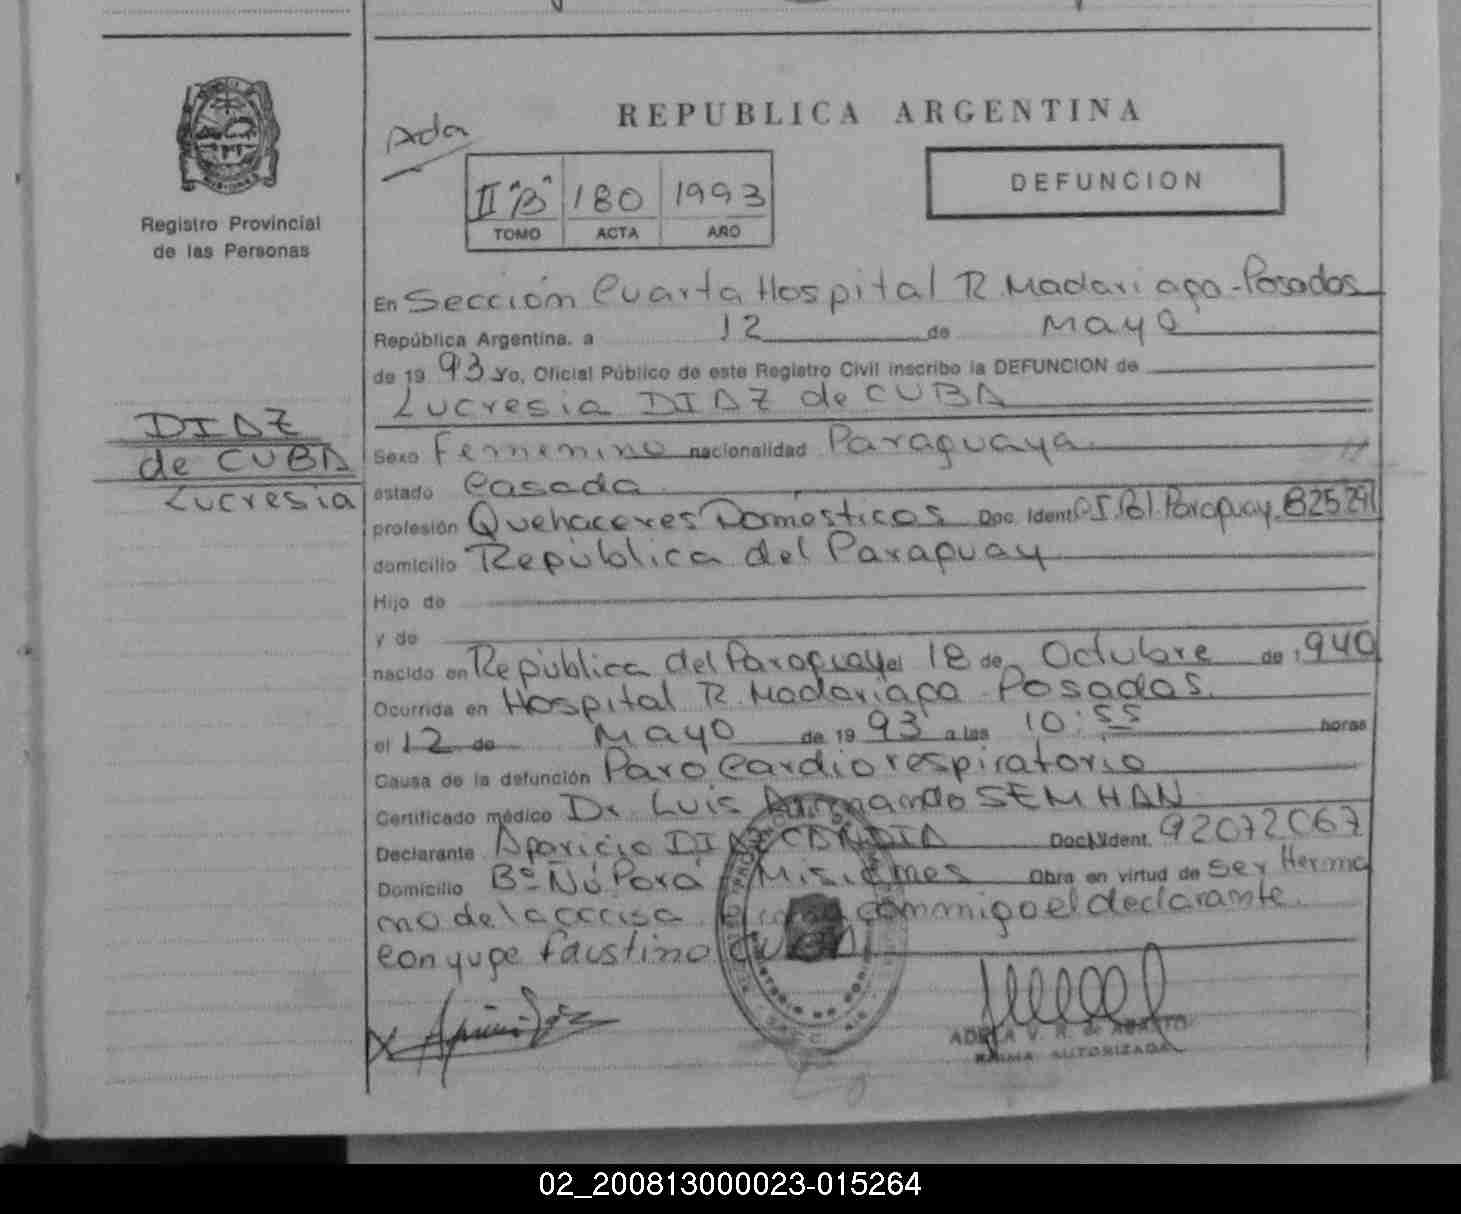 REPUBLICA ARGENTINA
Ada
II "B" 180 1993
TOMO ACTA AÑO
DEFUNCION
Registro Provincial
de las Personas
DIAZ
de CUBA
Lucresia
En Sección Cuarta Hospital R. Madariaga - Posadas
República Argentina, a 12 de Mayo
de 19 93 yo, Oficial Público de este Registro Civil inscribo la DEFUNCION de
Lucresia DIAZ de CUBA
Sexo Femenino nacionalidad Paraguaya
estado Casada
profesión Quehaceres Domesticos Doc. Ident C.I. Pol. Paraguay 825.291
domicilio República del Paraguay
Hijo de
y de
nacido en República del Paraguay el 18 de Octubre de 1940
Ocurrida en Hospital R. Madariaga - Posadas
el 12 de Mayo de 19 93 a las 10:55 horas
Causa de la defunción Paro Cardiorespiratorio
Certificado médico Dr. Luis Armando SEMHAN
Declarante Aparicio DIAZ Doc. Ident. 92072067
Domicilio Bº Ñú Porá Misiones Obra en virtud de ser Herma
no de la occisa conmigo el declarante.
conyuge Faustino CUBA
ADELA V. R. de
FIRMA AUTORIZADA
02_200813000023-015264